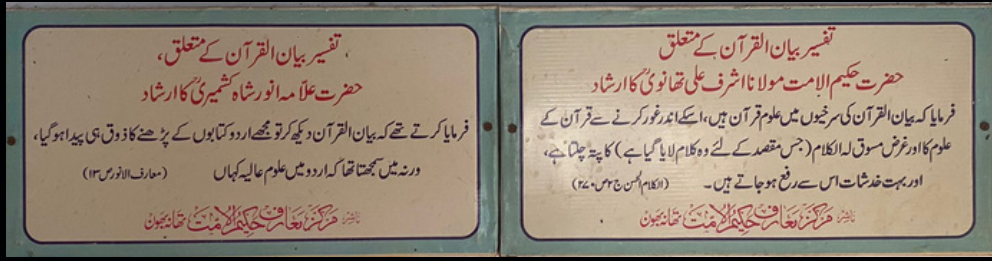 تفسیر بیان القرآن کے متعلق
حضرت حکیم الامت مولانا اشرف علی تھانویؒ کا ارشاد
فرمایا کہ بیان القرآن کی سرخیوں میں علوم قرآن ہیں، اسکے اندر غور کرنے سے قرآن کے
علوم کا اور غرض مسوق لہ الکلام (جس مقصد کے لئے وہ کلام لایا گیا ہے) کا پتہ چلتا ہے،
اور بہت خدشات اس سے رفع ہوجاتے ہیں۔ (الکلام الحسن ج۲ص۲۷۰)
ناشر: مرکز معارف حکیم الامت تھانہ بھون
، تفسیر بیان القرآن کے متعلق،
حضرت علّامہ انور شاہ کشمیریؒ کا ارشاد
فرمایا کرتے تھے کہ بیان القرآن دیکھ کر تو مجھے اردو کتابوں کے پڑھنے کا ذوق ہی پیدا ہو گیا،
ورنہ میں سمجھتا تھا کہ اردو میں علوم عالیہ کہاں (معارف الانور ص۱۳)
ناشر: مرکز معارف حکیم الامت تھانہ بھون